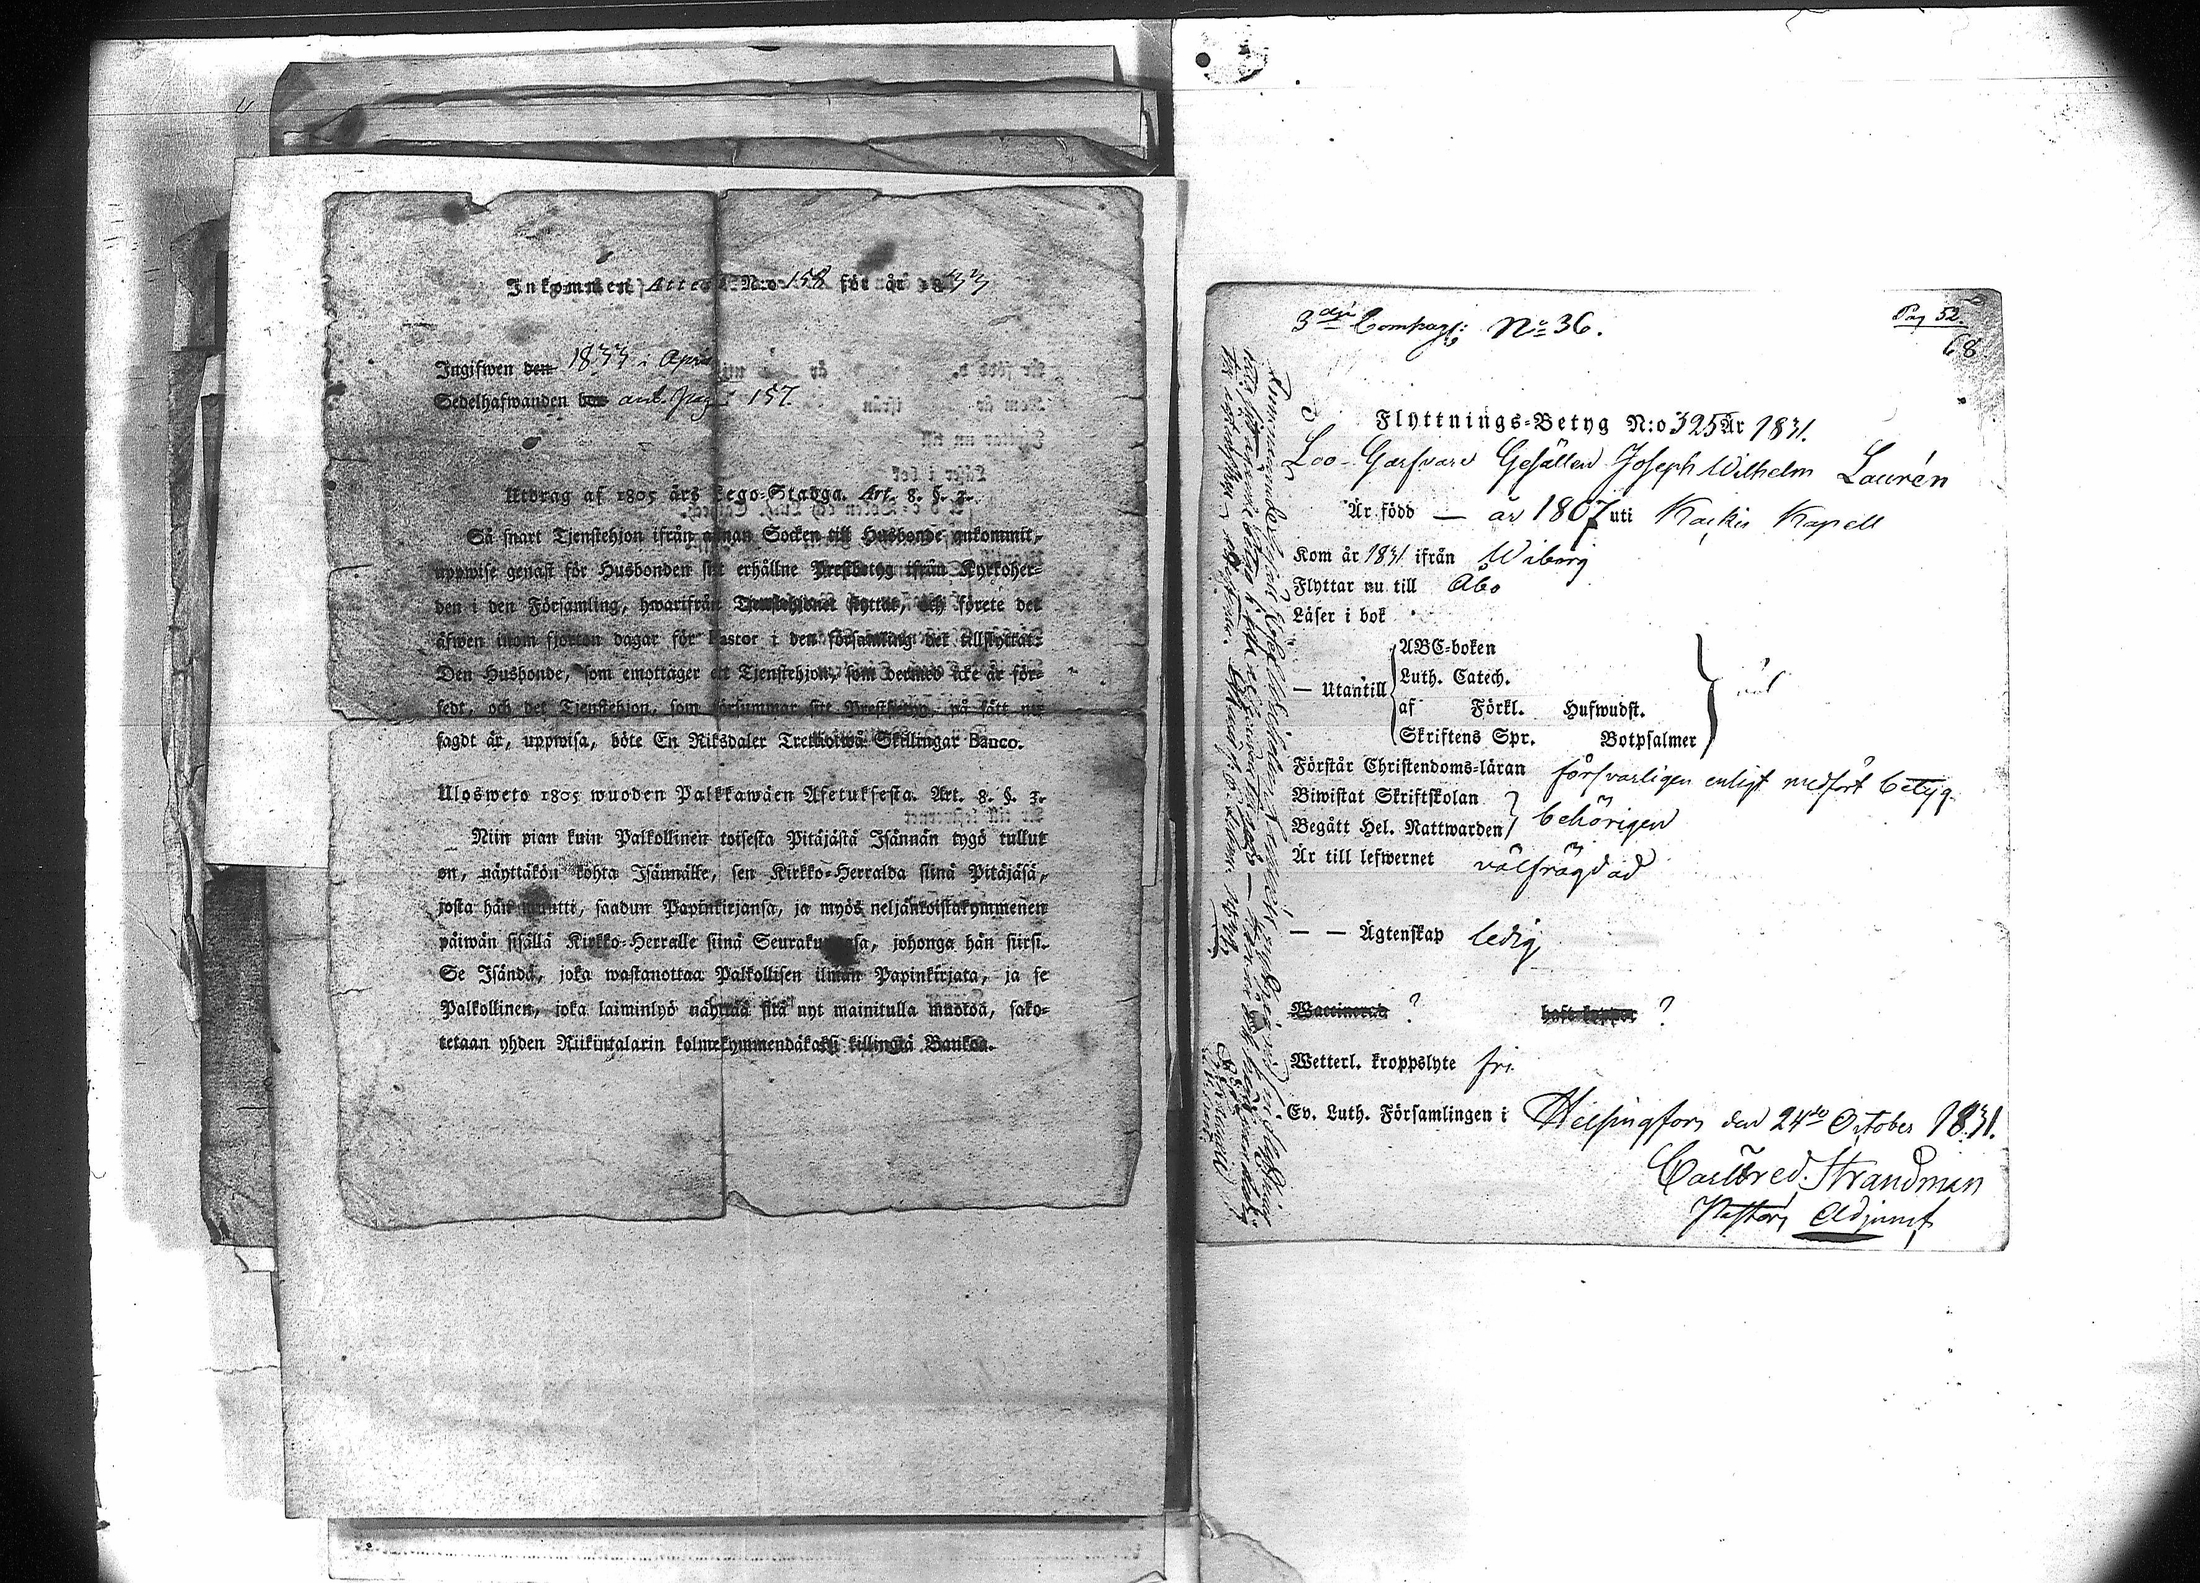 Inkommen Attest N:o 158 för år 1833
Ingifwen den 1833 i April
Sedelhafwanden bor ant. pag. 157.
Utdrag af 1805 års Lego-Stadga. Art. 8. §. 3.
Så snart Tjenstehjon ifrån annan Socken till Husbonde ankommit,
uppwise genast för Husbonden sitt erhållne Prestbetyg ifrån Kyrkoher-
den i den Församling, hwarifrån Tjenstehjonet flyttat, och förete det
äfwen inom fjorton dagar för Pastor i den församling det tillflyttat.
Den Husbonde, som emottager ett Tjenstehjon, som dermed icke är för-
sedt, och det Tjenstehjon, som försummar sitt Prestbetyg, på sätt nu
sagdt är, uppwisa, böte En Riksdaler Trettiotwå Skillingar Banco.
Ulosweto 1805 wuoden Palkkawäen Asetuksesta. Art. 8. §. 3.
Niin pian kuin Palkollinen toisesta Pitäjästä Isännän tygö tullut
on, näyttäkön kohta Isännälle, sen Kirkko-Herralda siinä Pitäjäsä,
josta hän muutti, saadun Papinkirjansa, ja myös neljänkoistakymmenen
päiwän sisällä Kirkko-Herralle siinä Seurakunnasa, johonga hän siirsi.
Se Isändä, joka wastanottaa Palkollisen ilman Papinkirjata, ja se
Palkollinen, joka laiminlyö näyttää sitä nyt mainitulla muotoa, sako-
tetaan yhden Riikintalarin kolmekymmendäkaksi killingiä Bankoa.
3dje Compag: No 36.
Pag 52.
68
Flyttnings-Betyg N:o 325 År 1831.
Loo-Garfvare Gesällen Joseph Wilhelm Laurén
Är född — år 1807 uti Karkis Kapell
Kom år 1831 ifrån Wiborg
Flyttar nu till Åbo
Läser i bok
— Utantill
ABC-boken
Luth. Catech.
af Förkl. Hufwudst.
Skriftens Spr. Botpsalmer
väl
Förstår Christendoms-läran försvarligen enligt medfört betyg
Biwistat Skriftskolan
Begått Hel. Nattwarden
behörigen
Är till lefwernet välfrägdad
— — Ägtenskap ledig
Waccinerad ? haft koppor ?
Wetterl. kroppslyte fri
Ev. Luth. Församlingen i Helsingfors den 24de October 1831.
Carl Fred. Strandman
Pastors Adjunct